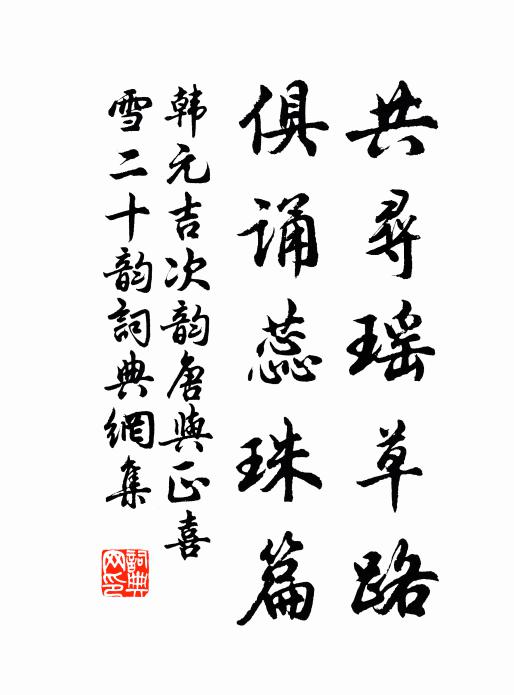 共尋瑶草路
俱誦蕊珠篇
韩元吉次韵唐與正喜
雪二十韵詞典網集
詞典
网印